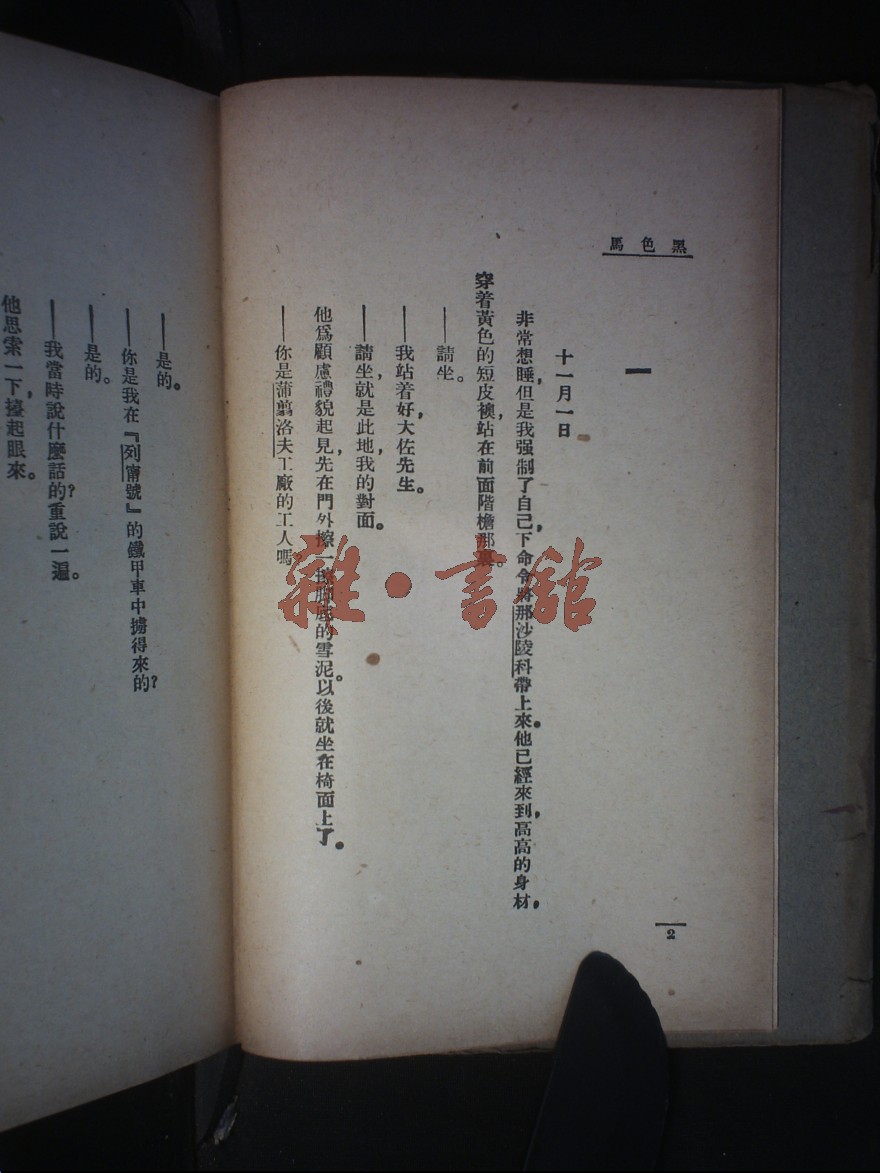 黑色馬
一
十一月一日
非常想睡，但是我强制了自己，下命令將那沙陵科帶上來。他已經來到，高高的身材，
穿着黃色的短皮襖，站在前面階檐那裏。
——請坐。
——我站着好，大佐先生。
——請坐，就是此地，我的對面。
他爲顧慮禮貌起見，先在門外擦一擦脚底的雪泥。以後就坐在椅面上了。
——你是蒲翦洛夫工廠的工人嗎？
2
——是的。
——你是我在『列甯號』的鐵甲車中擄得來的？
——是的。
——我當時說什麼話的？重說一遍。
他思索一下，擡起眼來。
雜·書館